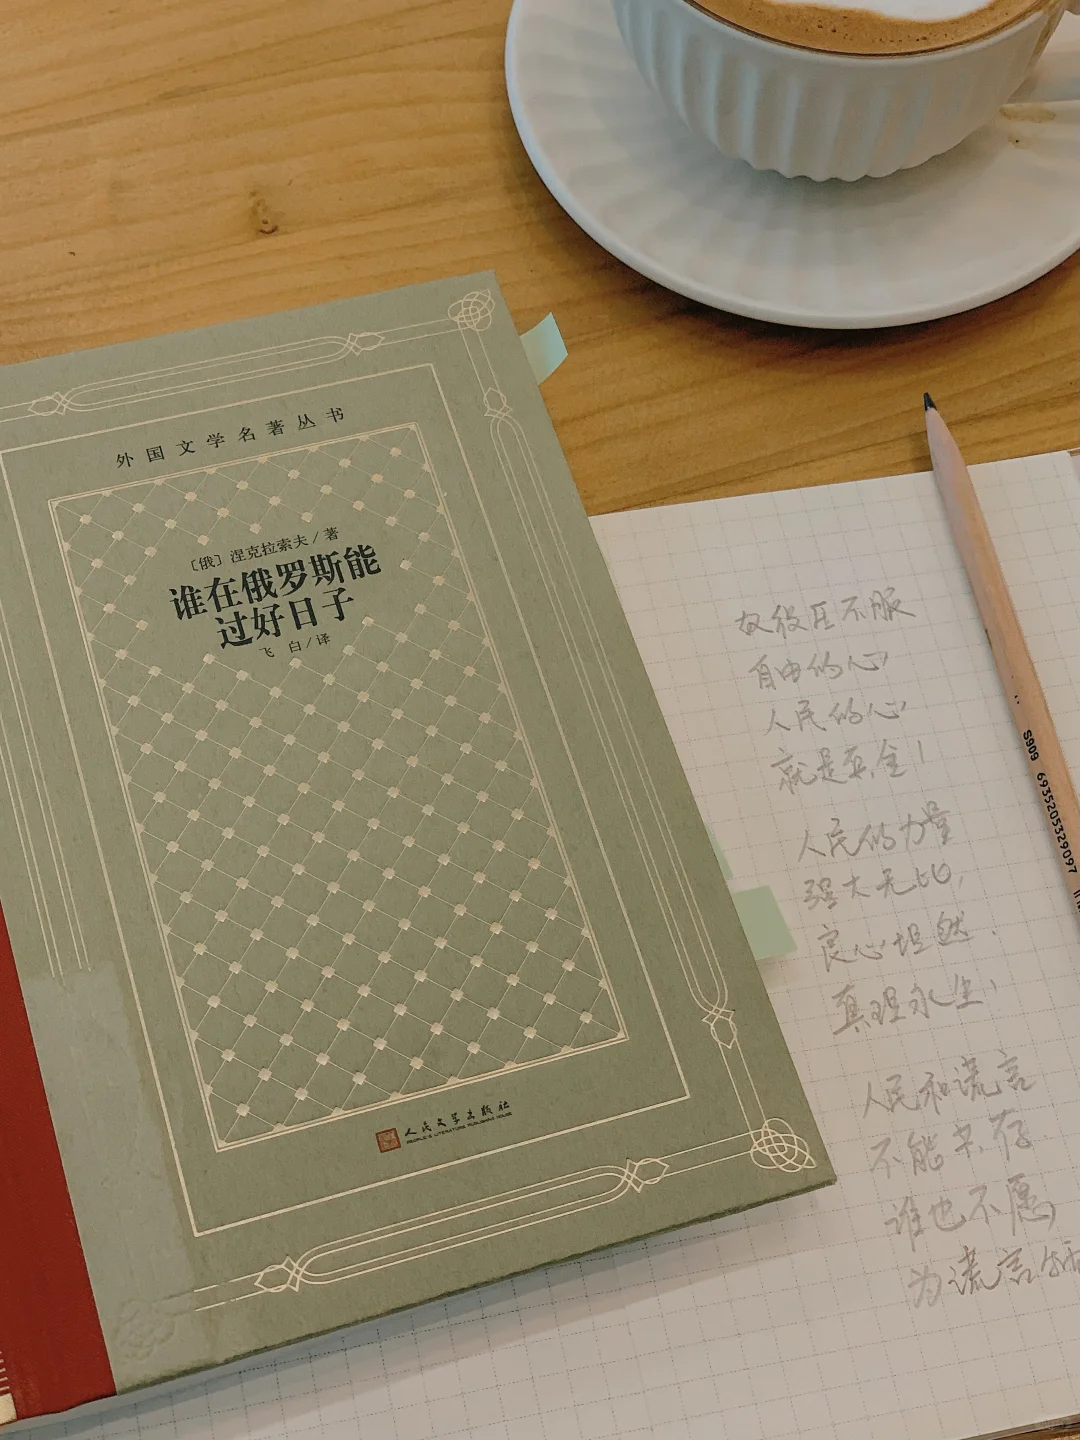 外国文学名著丛书
〔俄〕涅克拉索夫/著
谁在俄罗斯能
过好日子
飞白/译
人民文学出版社
PEOPLE'S LITERATURE PUBLISHING HOUSE
奴役压不服
自由的心
人民的心
就是真金!
人民的力量
强大无比,
良心坦然.
真理永生,
人民和谎言
不能共存
谁也不愿
为谎言牺
S909 6935205329097